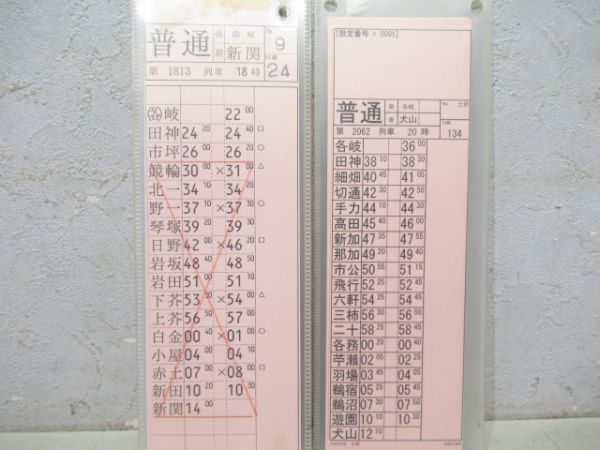 普通 発 各岐 No. 9
着 新関 行路 24
第 1813 列車 18時
各岐 22 00
田神 24 20 24 40 □
市坪 26 00 26 20 ○
競輪 30 00 × 31 00 △
北一 34 10 34 20
野一 37 10 × 37 30 ○
琴塚 39 20 39 30
日野 42 00 × 46 20 □
岩坂 48 40 48 50
岩田 51 00 51 10
下芥 53 30 × 54 00 △
上芥 56 50 57 00
白金 00 40 × 01 00 ○
小屋 04 00 04 10
赤土 07 00 × 08 00 □
新田 10 20 10 30
新関 14 00
[設定番号 = 0001]
普通 発 各岐 No. 土休
着 犬山 行路 134
第 2062 列車 20時
各岐 36 00
田神 38 10 38 30
細畑 40 45 41 05
切通 42 30 42 50
手力 44 10 44 30
高田 45 40 46 00
新加 47 35 47 55
那加 49 20 49 40
市公 50 55 51 15
飛行 52 25 52 45
六軒 54 25 54 45
三柿 56 30 56 50
二十 58 25 58 45
各務 00 20 00 40
苧瀬 02 05 02 25
羽場 03 45 04 05
鵜宿 05 25 05 45
鵜沼 07 30 07 50
遊園 10 10 10 30
犬山 12 10